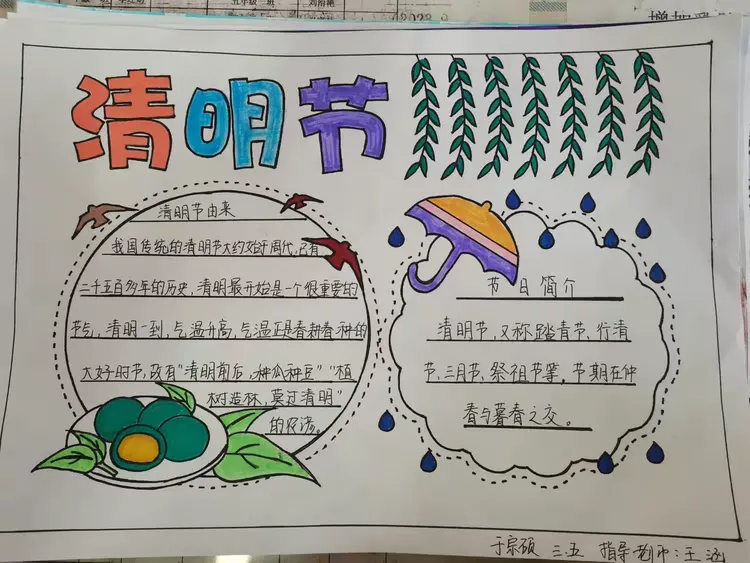 清明节
清明节由来
我国传统的清明节大约始于周代,已有
二千五百多年的历史,清明最开始是一个很重要的
节气,清明一到,气温升高,气温正是春耕春种的
大好时节,故有"清明前后,种瓜种豆""植
树造林,莫过清明"
的农谚。
节日简介
清明节,又称踏青节、行清
节、三月节、祭祖节等,节期在仲
春与暮春之交。
于宗硕 三.五 指导老师:王涵